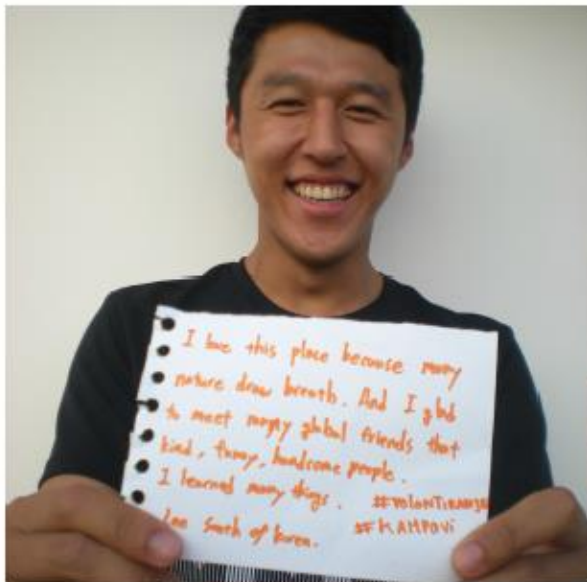 I love this place because many
nature draw breath. And I glad
to meet many global friends that
kind, funny, handsome people.
I learned many things. #VOLONTIRANJE
Lee South of Korea. #KAMPOVI